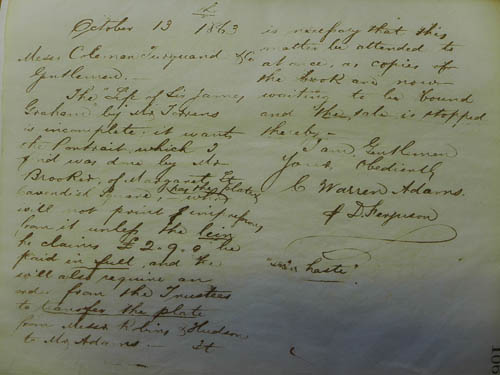 October 13 1863
Messrs Coleman Turquand & Co
Gentlemen.—
The "Life of Sir James
Graham" by Mr Torrens
is incomplete, it wants
the Portrait, which I
find was done by Mr
Brooker, of Margaret St
Cavendish Square,— who
has the plate
will not print
from it unless the lien
he claims £2.9.0 be
paid in full, and he
will also require an
order from the Trustees
to transfer the plate
from Messrs & Hudson
to Mr Adams.— It
is necessary that this
matter be attended to
at once, as copies of
the book are now
waiting to be bound
and the sale is stopped
thereby.—
I am Gentlemen
Yours Obediently
C Warren Adams.
D. Ferguson
haste"